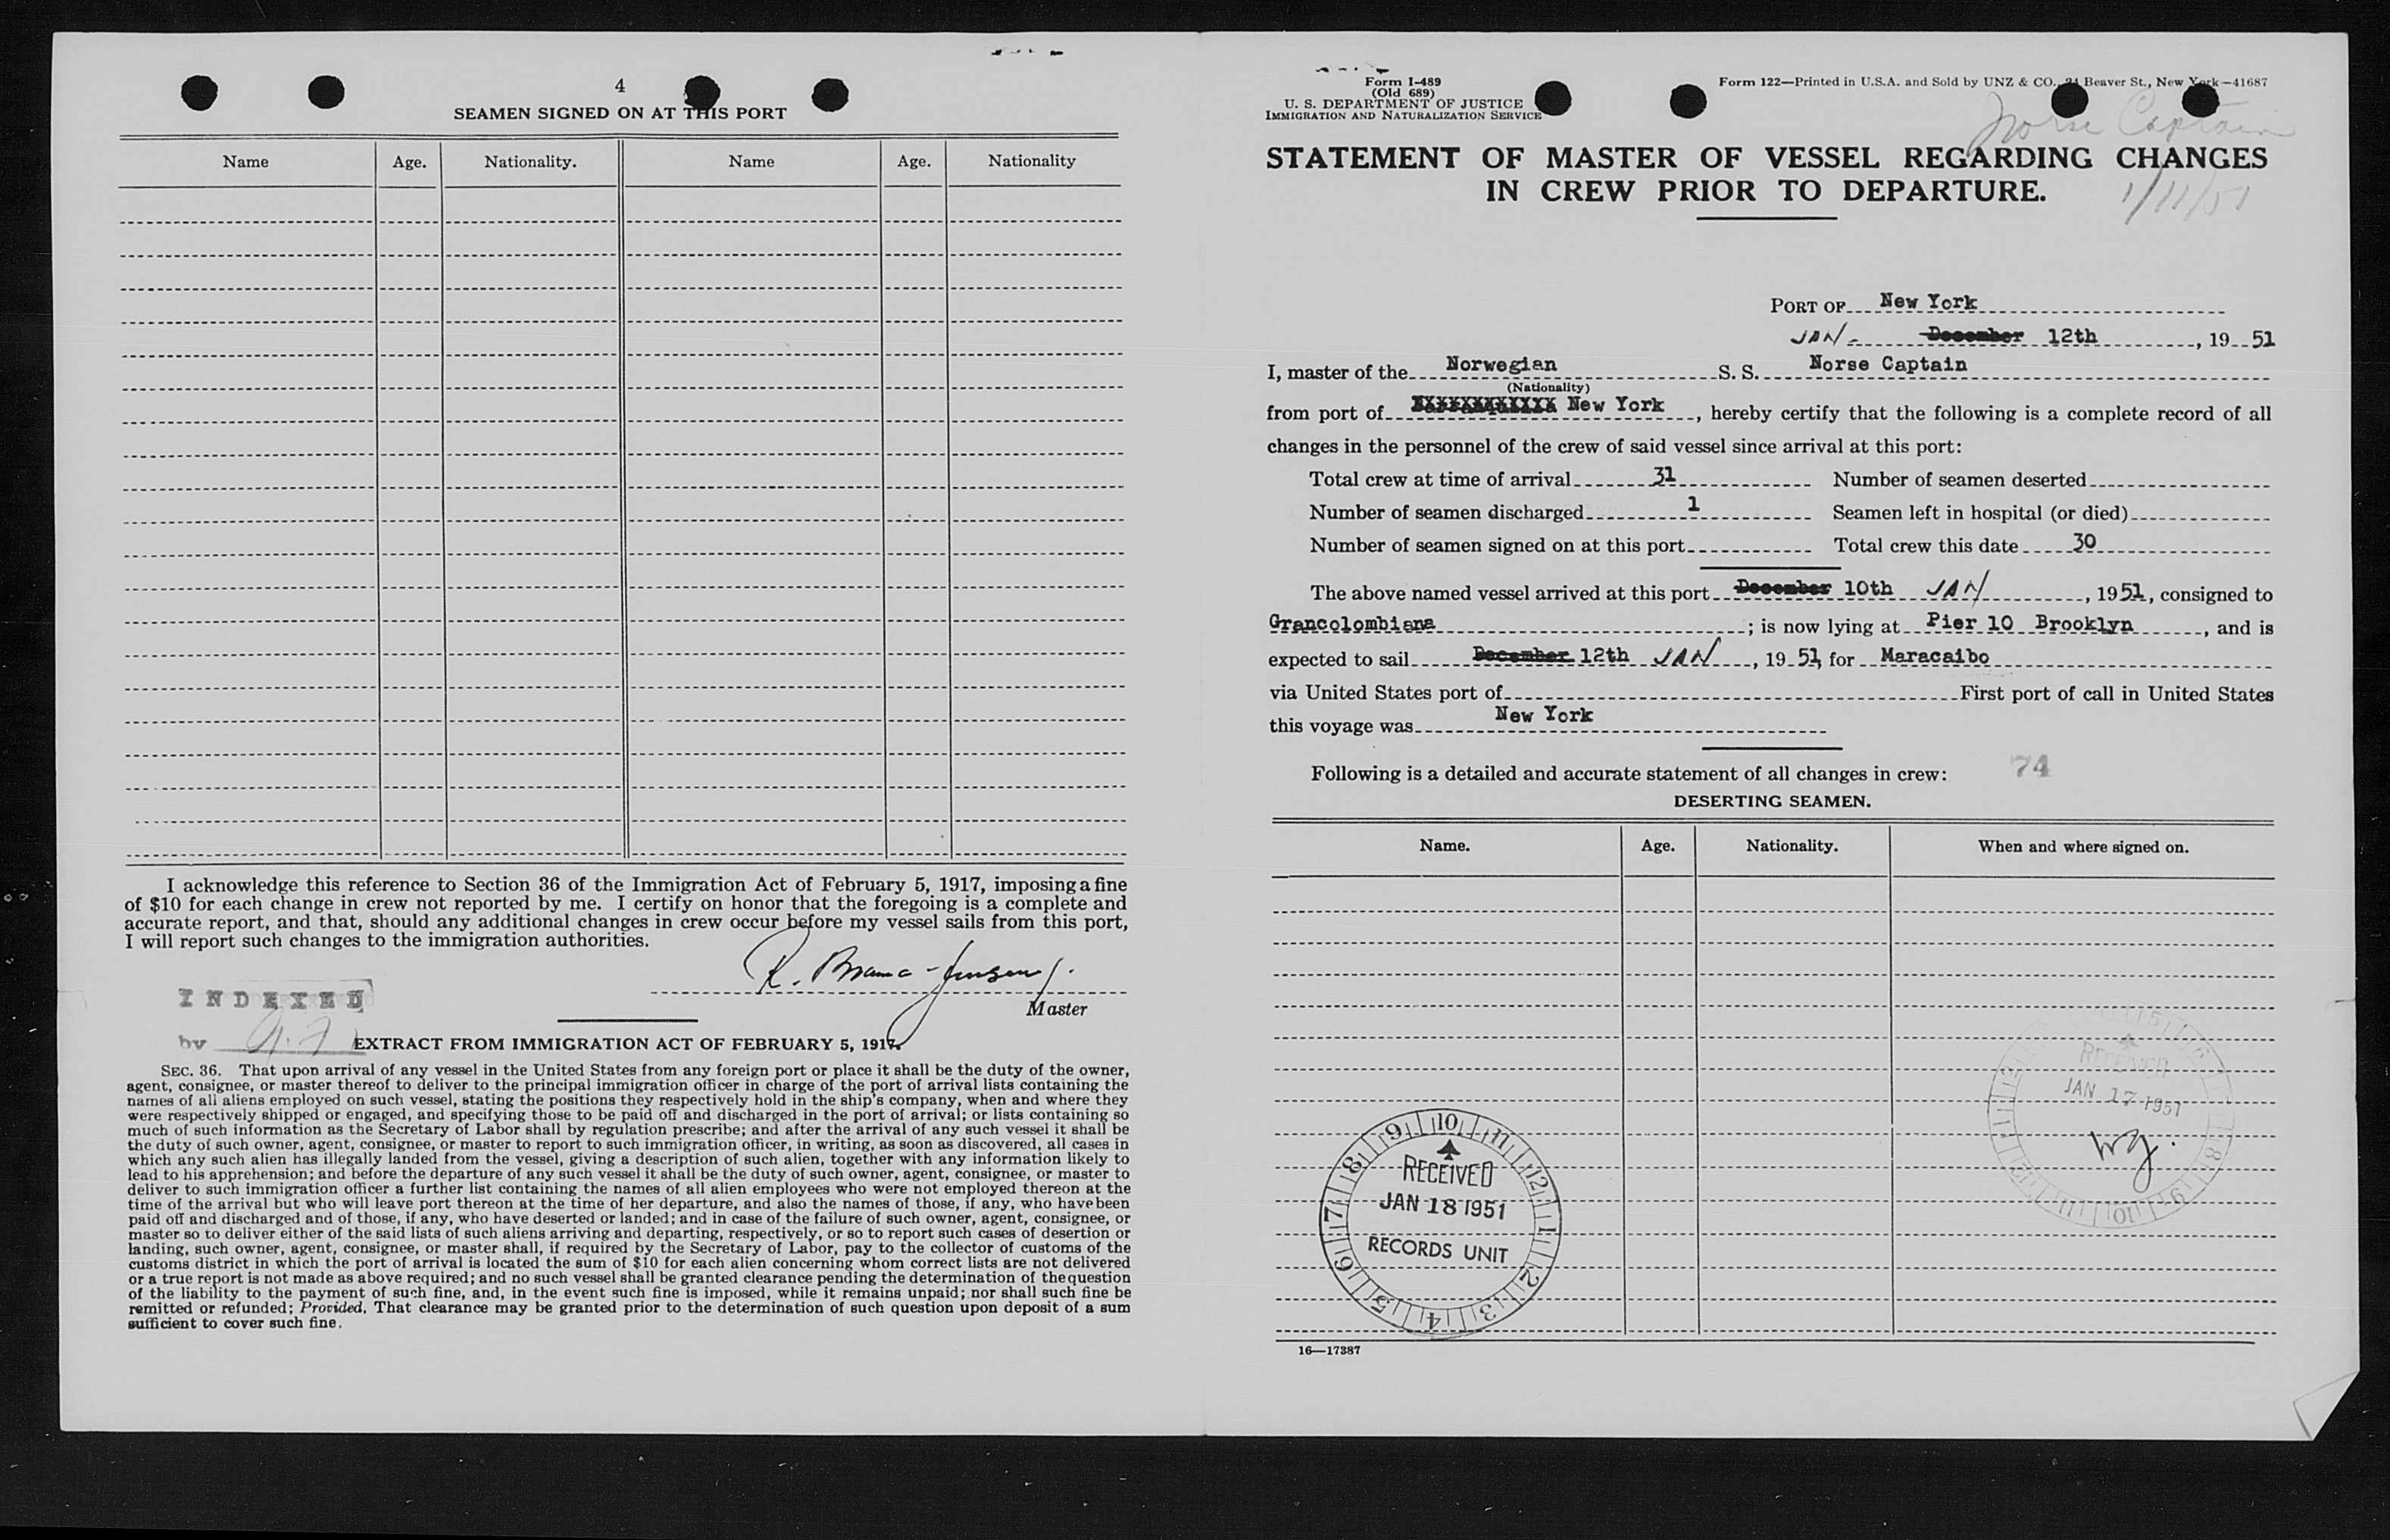 4
SEAMEN SIGNED ON AT THIS PORT
Name Age. Nationality. Name Age. Nationality
I acknowledge this reference to Section 36 of the Immigration Act of February 5, 1917, imposing a fine
of $10 for each change in crew not reported by me. I certify on honor that the foregoing is a complete and
accurate report, and that, should any additional changes in crew occur before my vessel sails from this port,
I will report such changes to the immigration authorities.
Master
INDEXED
by
EXTRACT FROM IMMIGRATION ACT OF FEBRUARY 5, 1917.
SEC. 36. That upon arrival of any vessel in the United States from any foreign port or place it shall be the duty of the owner,
agent, consignee, or master thereof to deliver to the principal immigration officer in charge of the port of arrival lists containing the
names of all aliens employed on such vessel, stating the positions they respectively hold in the ship's company, when and where they
were respectively shipped or engaged, and specifying those to be paid off and discharged in the port of arrival; or lists containing so
much of such information as the Secretary of Labor shall by regulation prescribe; and after the arrival of any such vessel it shall be
the duty of such owner, agent, consignee, or master to report to such immigration officer, in writing, as soon as discovered, all cases in
which any such alien has illegally landed from the vessel, giving a description of such alien, together with any information likely to
lead to his apprehension; and before the departure of any such vessel it shall be the duty of such owner, agent, consignee, or master to
deliver to such immigration officer a further list containing the names of all alien employees who were not employed thereon at the
time of the arrival but who will leave port thereon at the time of her departure, and also the names of those, if any, who have been
paid off and discharged and of those, if any, who have deserted or landed; and in case of the failure of such owner, agent, consignee, or
master so to deliver either of the said lists of such aliens arriving and departing, respectively, or so to report such cases of desertion or
landing, such owner, agent, consignee, or master shall, if required by the Secretary of Labor, pay to the collector of customs of the
customs district in which the port of arrival is located the sum of $10 for each alien concerning whom correct lists are not delivered
or a true report is not made as above required; and no such vessel shall be granted clearance pending the determination of the question
of the liability to the payment of such fine, and, in the event such fine is imposed, while it remains unpaid; nor shall such fine be
remitted or refunded; Provided, That clearance may be granted prior to the determination of such question upon deposit of a sum
sufficient to cover such fine.
Form I-489
(Old 689)
U. S. DEPARTMENT OF JUSTICE
IMMIGRATION AND NATURALIZATION SERVICE
Form 122—Printed in U.S.A. and Sold by UNZ & CO., 24 Beaver St., New York—41687
Norse Captain
STATEMENT OF MASTER OF VESSEL REGARDING CHANGES
IN CREW PRIOR TO DEPARTURE.
1/11/51
PORT OF New York
JAN- December 12th, 19 51
I, master of the Norwegian S. S. Norse Captain
(Nationality)
from port of New York, hereby certify that the following is a complete record of all
changes in the personnel of the crew of said vessel since arrival at this port:
Total crew at time of arrival 31 Number of seamen deserted
Number of seamen discharged 1 Seamen left in hospital (or died)
Number of seamen signed on at this port Total crew this date 30
The above named vessel arrived at this port December 10th JAN, 1951, consigned to
Grancolombiana; is now lying at Pier 10 Brooklyn, and is
expected to sail December 12th JAN, 19 51, for Maracaibo
via United States port of First port of call in United States
this voyage was New York
Following is a detailed and accurate statement of all changes in crew: 74
DESERTING SEAMEN.
Name. Age. Nationality. When and where signed on.
RECEIVED
JAN 17 1951
9 10 11 12 1 2 3 4 5 6 7 8
RECEIVED
JAN 18 1951
RECORDS UNIT
16—17387